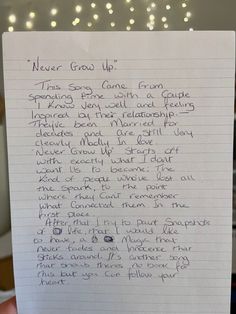 "Never Grow Up"
This Song Came From
Spending time with a Couple
I Know Very well and feeling
Inspired by their relationship.
They've been Married for
decades and are Still Very
Clearly Madly In love.
'Never Grow Up' Starts off
with exactly what I don't
want Us to become; The
Kind of people who've lost all
the Spark, to the point
where they Can't remember
what Connected them In the
first place.
After that I try to paint Snapshots
of life that I would like
to have, a Magic that
never fades and Innocence that
Sticks around. It's another song
that Shows there's no book for
this but you Can follow your
heart.